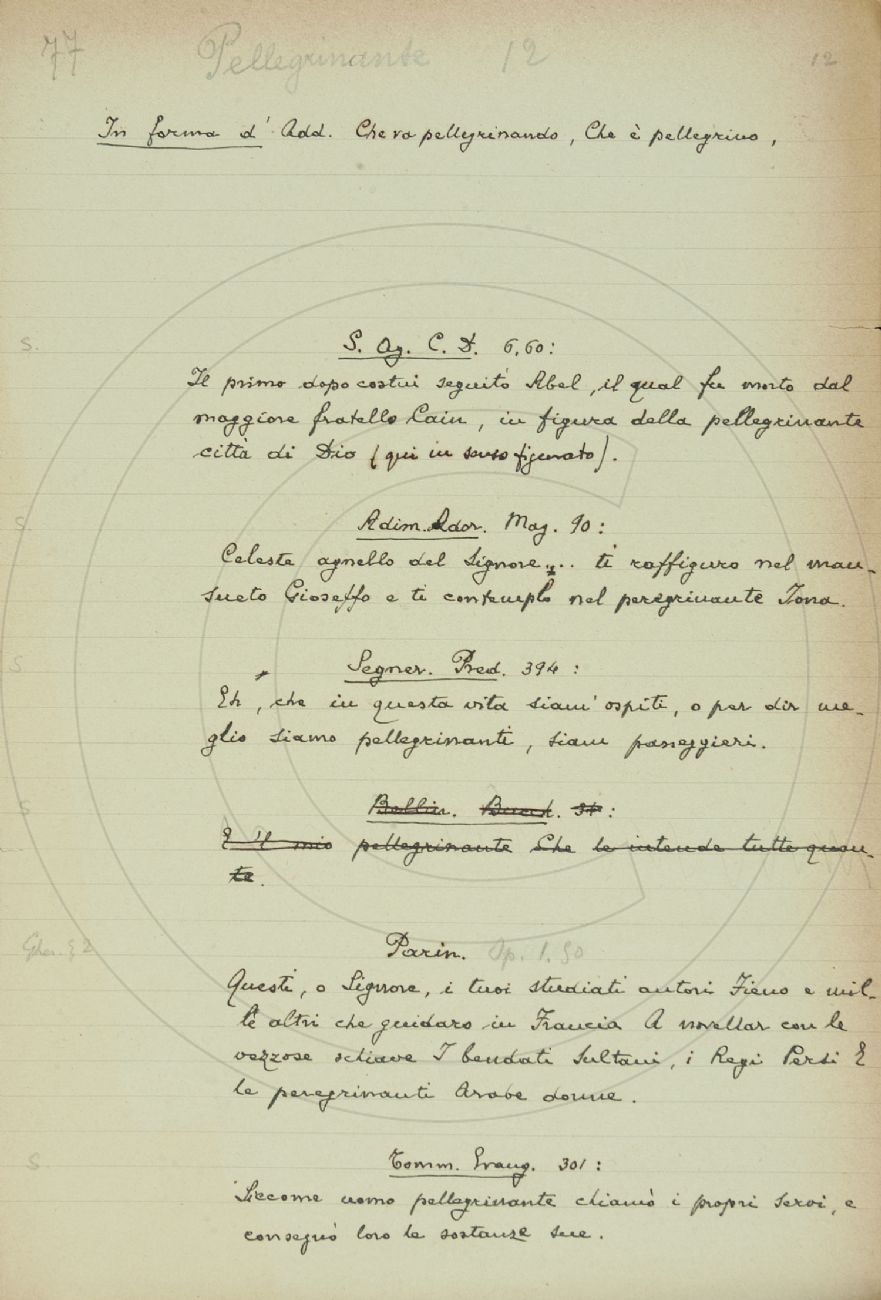 77 Pellegrinante 12 12
In forma d' Add. Che va pellegrinando, Che è pellegrino,
S. S. Ag. C. D. 6.60:
Il primo dopo costui seguitò Abel, il qual fu morto dal
maggiore fratello Cain, in figura della pellegrinante
città di Dio (qui in senso figurato).
S. Adim. Ador. Mag. 90:
Celeste agnello del Signore... ti raffiguro nel man-
sueto Gioseffo e ti contemplo nel peregrinante Iona.
S Segner. Pred. 394:
Eh, che in questa vita siam' ospiti, o per dir me-
glio siamo pellegrinanti, siam passeggieri.
S Bellin. Bucch. :
E 'l mio pellegrinante Che le intende tutte quan-
te.
Gher. § 2 Parin. Op. 1.90
Questi, o Signore, i tuoi studiati autori Fieno e mil-
le altri che guidaro in Francia A novellar con le
vezzose schiave I bendati Sultani, i Regi Persi E
le peregrinanti Arabe donne.
S Tomm. Evang. 301:
Siccome uomo pellegrinante chiamò i propri servi, e
consegnò loro le sostanze sue.